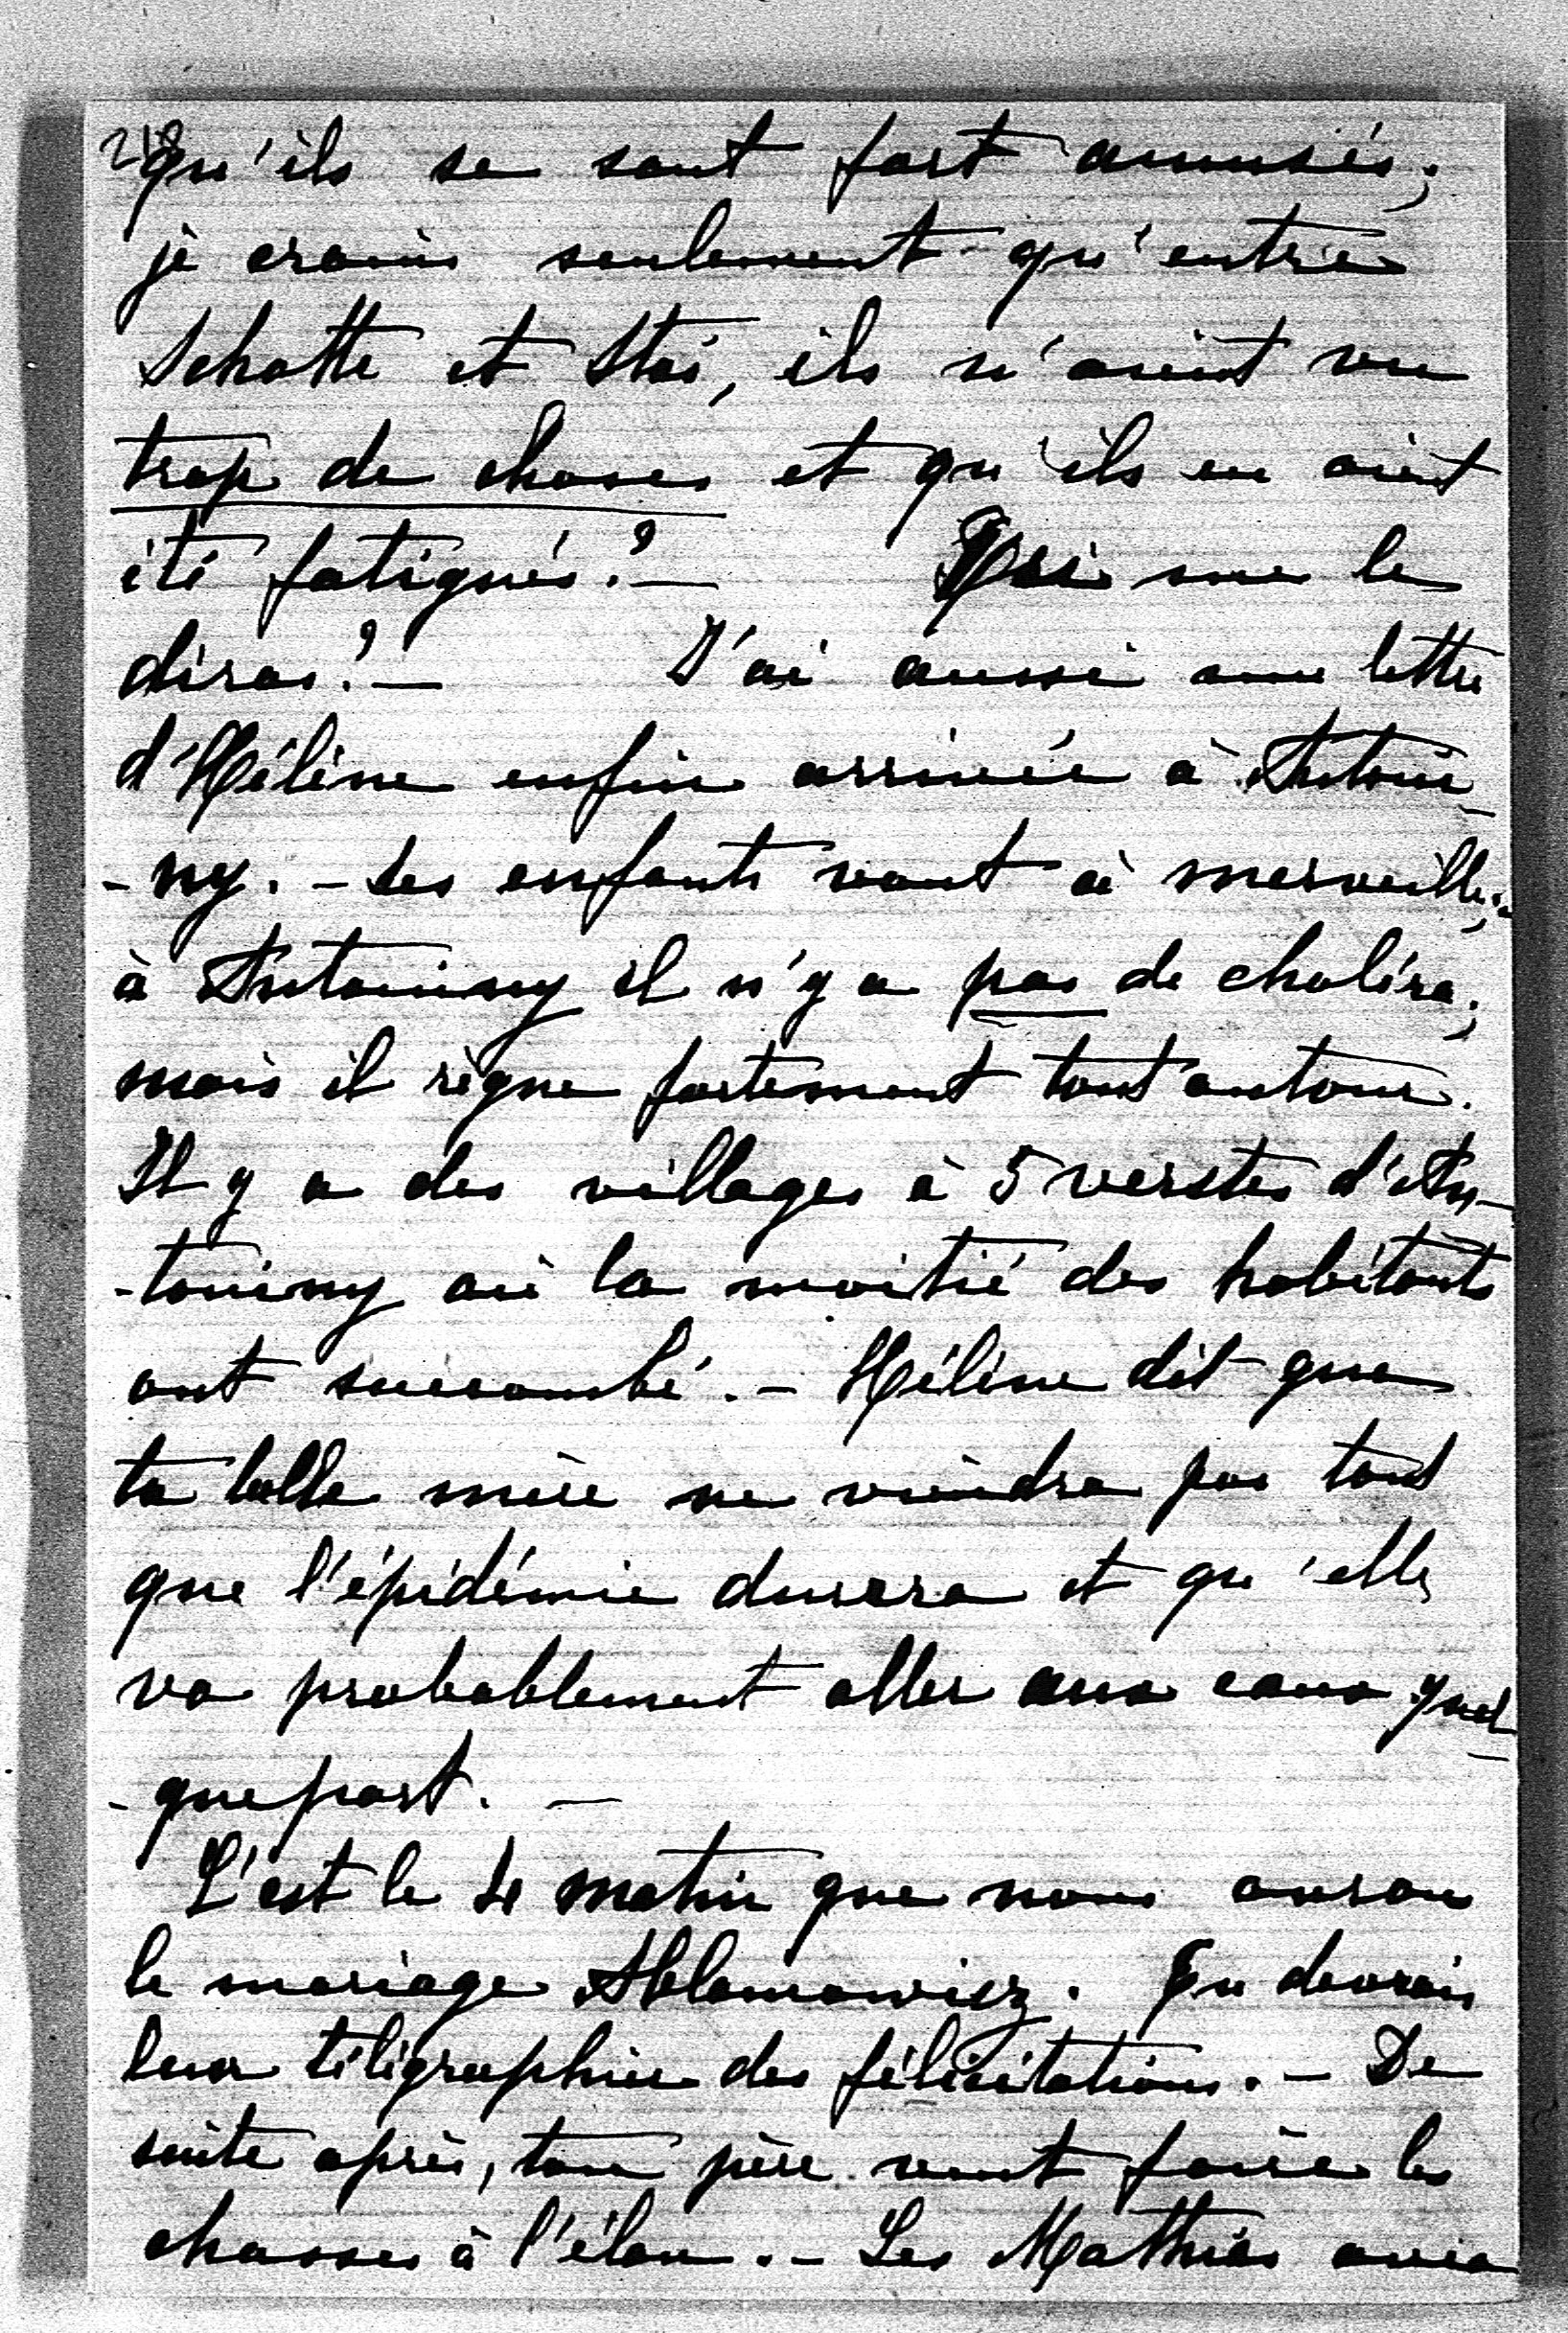 218
qu'ils se sont fort amusés;
je crains seulement qu'entre
Schatte et Stas, ils n'aient vu
trop de choses et qu'ils en aient
été fatigués?—       me le
diras?—      J'ai aussi une lettre
d'Hélène enfin arrivée à Antoni-
-ny. - Les enfants vont à merveille;
à Antoniny il n'y a pas de choléra;
mais il règne fortement tout autour.
Il y a des villages à 5 verstes d'An-
-toniny où la moitié des habitants
ont succombé. - Hélène dit que
ta belle mère ne viendra pas tant
que l'épidémie durera et qu'elle
va probablement aller aux eaux quel-
-que part. —
C'est le 4 matin que nous aurons
le mariage Ablamowicz. Tu devrais
leur télégraphier des félicitations. - De
suite après, ton père veut faire les
chasses à l'élan. - Les Mathias avec